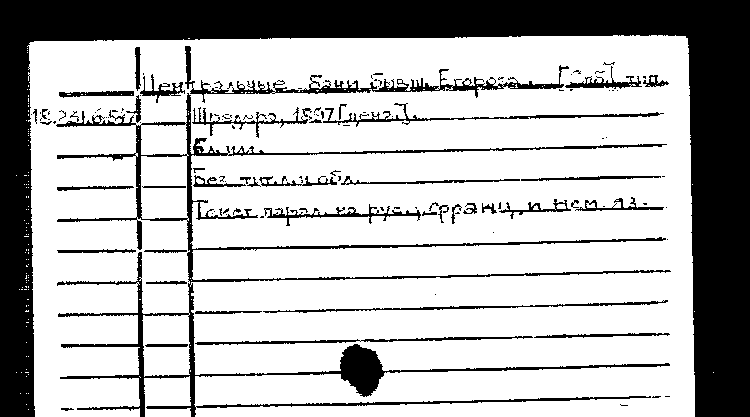 Центральные бани бывш. Егорова. [Спб.] тип.
18.231.6.547 Шредера, 1897 [ценз.].
6 л. ил.
Без тит. л. и обл.
Текст парал. на рус., франц. и нем. яз.